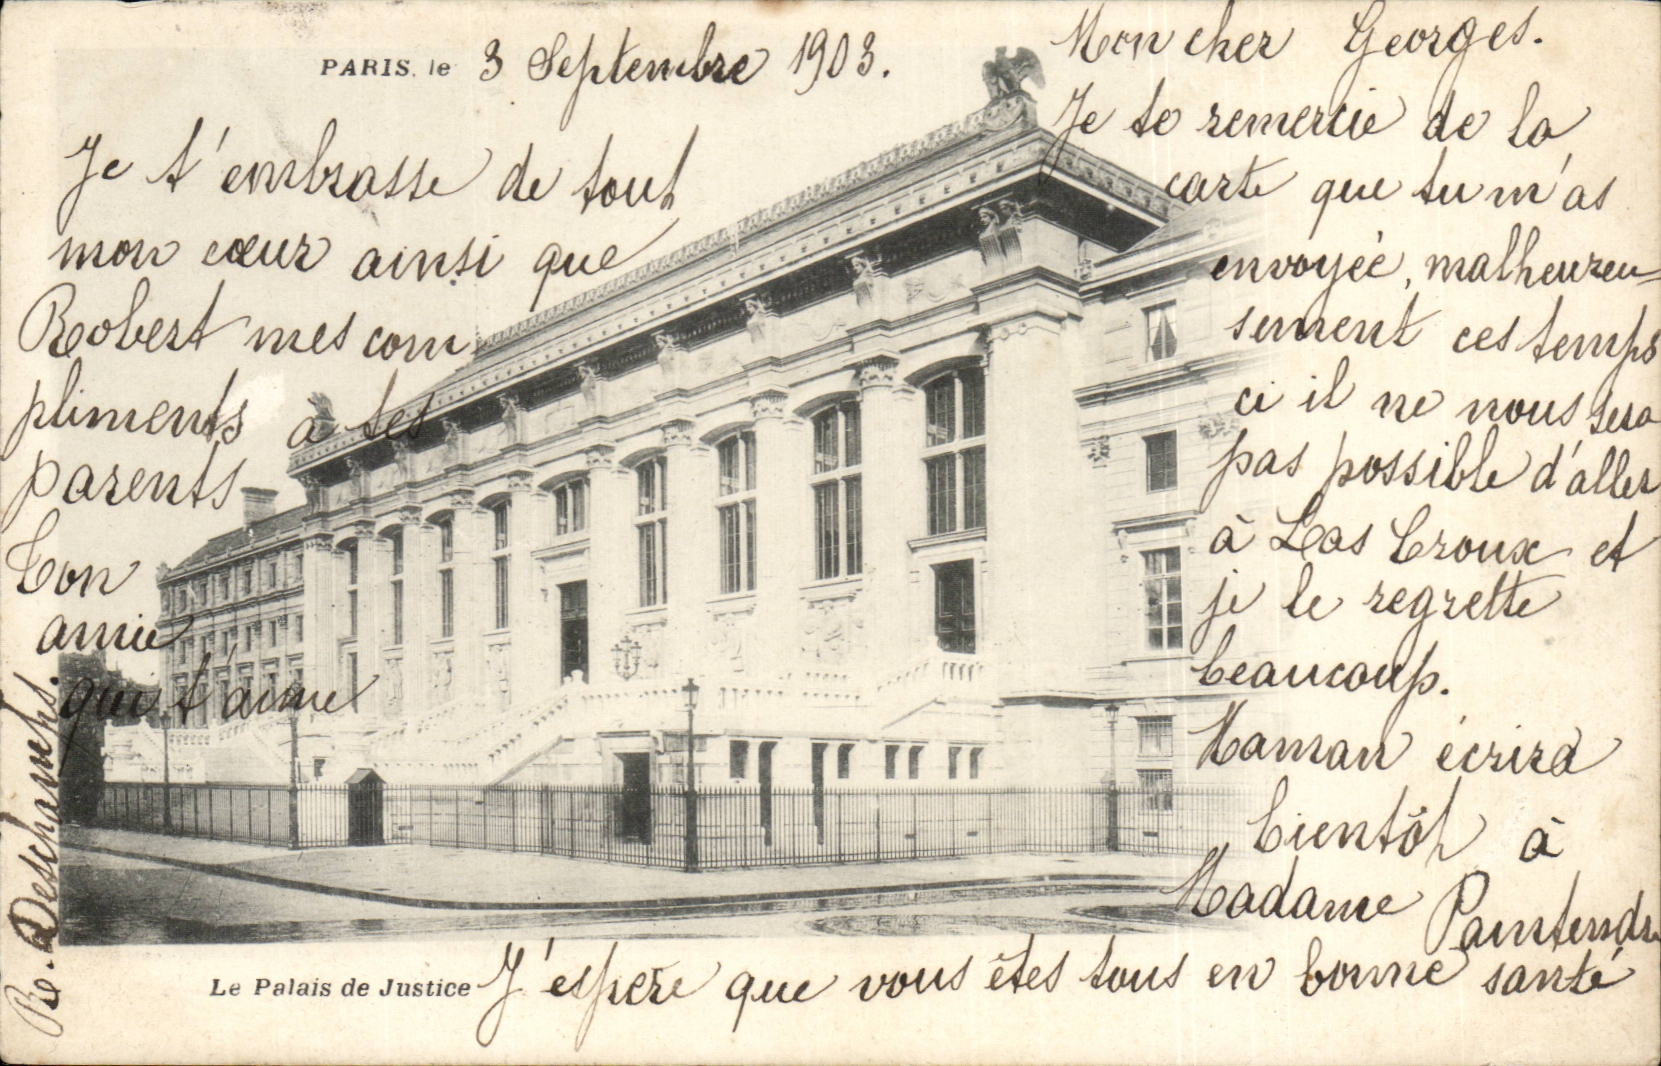 PARIS, le 3 Septembre 1903.
Mon cher Georges.
Je te remercie de la
carte que tu m'as
envoyée, malheureu=
sement ces temps
ci il ne nous sera
pas possible d'aller
à Las Croux et
je le regrette
beaucoup.
Maman écrira
bientôt à
Madame
J'espère que vous êtes tous en bonne santé
Je t'embrasse de tout
mon cœur ainsi que
Robert mes com
pliments à tes
parents
Ton
amie
qui t'aime
Deschamps.
Le Palais de Justice